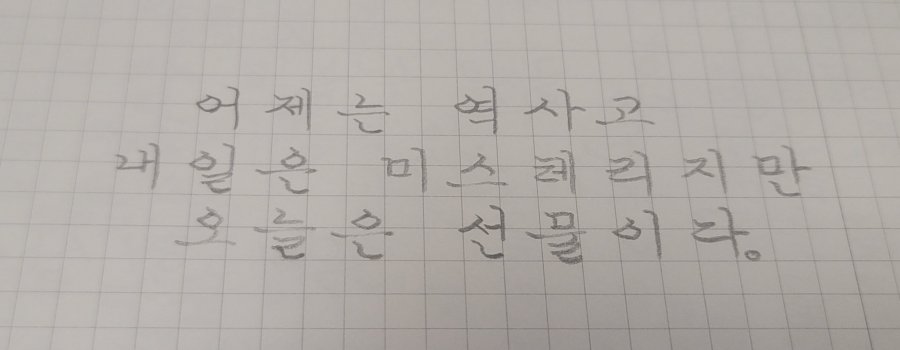 어제는 역사고
내일은 미스테리지만
오늘은 선물이라。